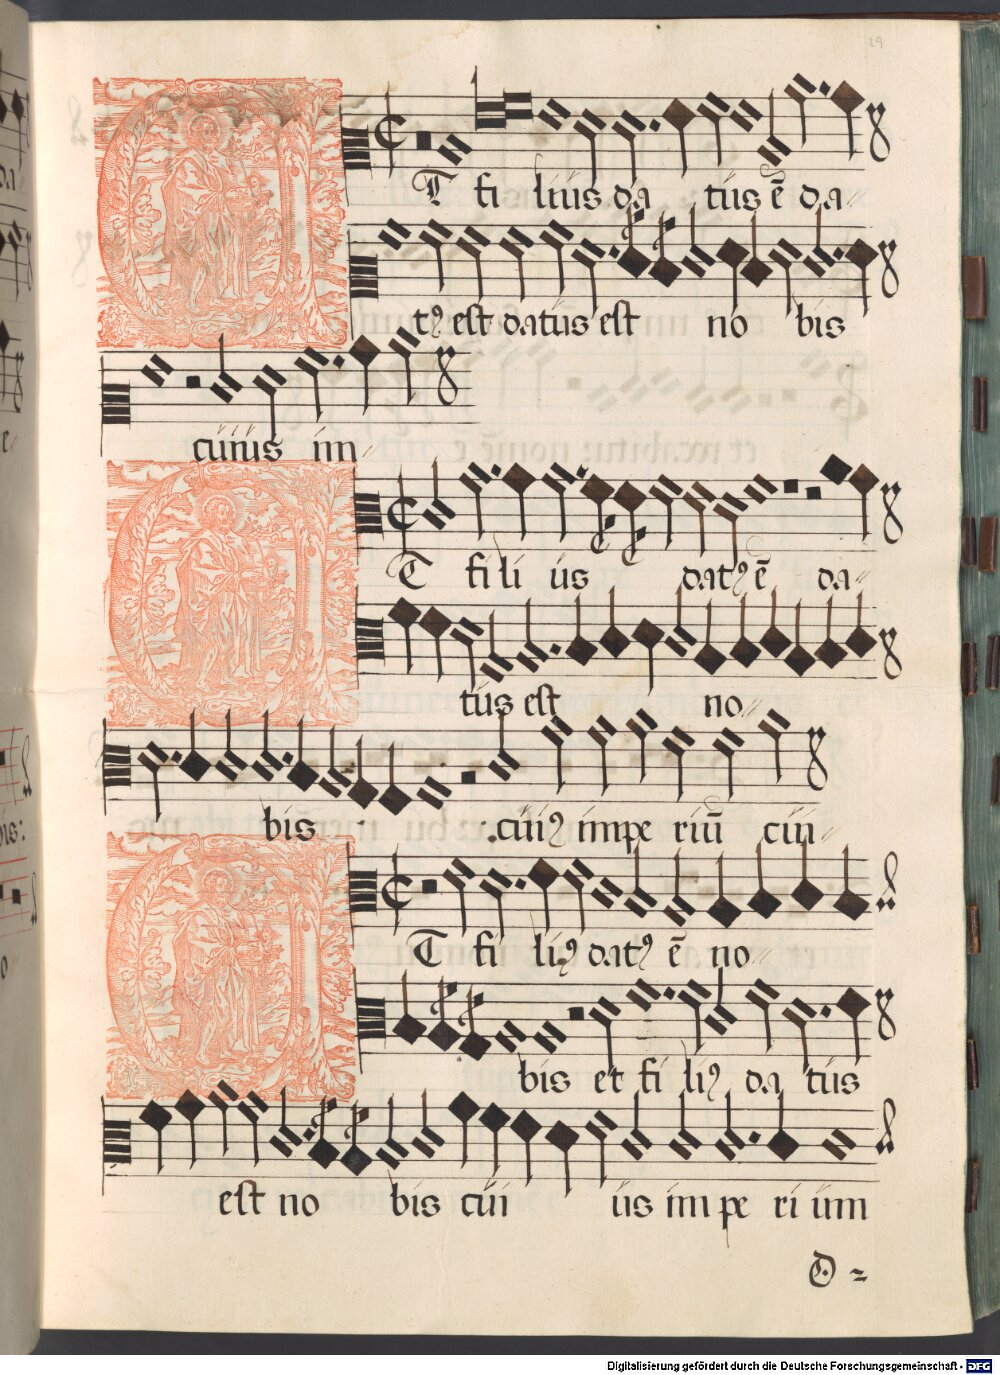 29
T fi lius da tus ē da
tꝰ est datus est no bis
cuius im
T fi li us datꝰ ē da
tus est no
bis cuiꝰ impe riū cui
T fi liꝰ datꝰ ē no
bis et fi liꝰ da tus
est no bis cui us im pe ri um
Digitalisierung gefördert durch die Deutsche Forschungsgemeinschaft - DFG